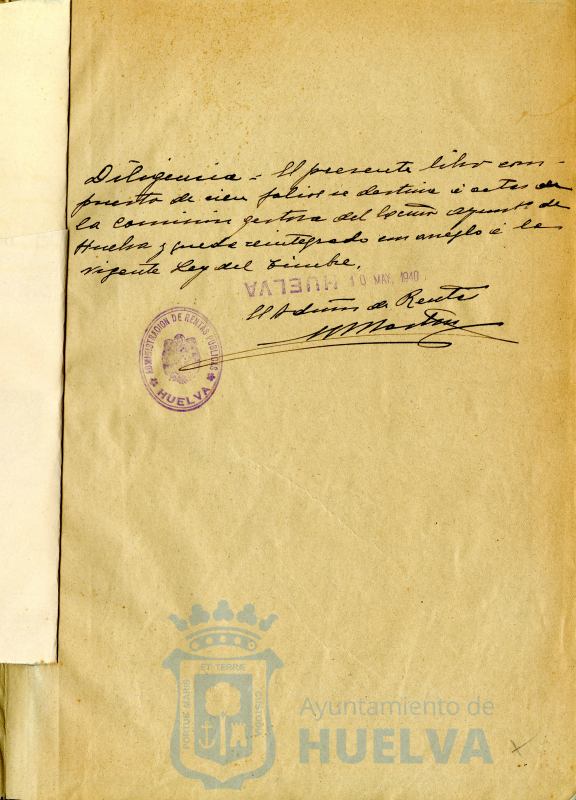 Diligencia = El presente libro com-
puesto de cien folios se destina á actas de
la Comisión gestora del Excmo Ayuntº de
Huelva y queda reintegrado con arreglo á la
vigente Ley del Timbre.
HUELVA 10 MAY. 1940
El Admor de Rentas
ADMINISTRACION DE RENTAS PUBLICAS
HUELVA
PORTUS MARIS
ET TERRE
CUSTODIA
Ayuntamiento de
HUELVA